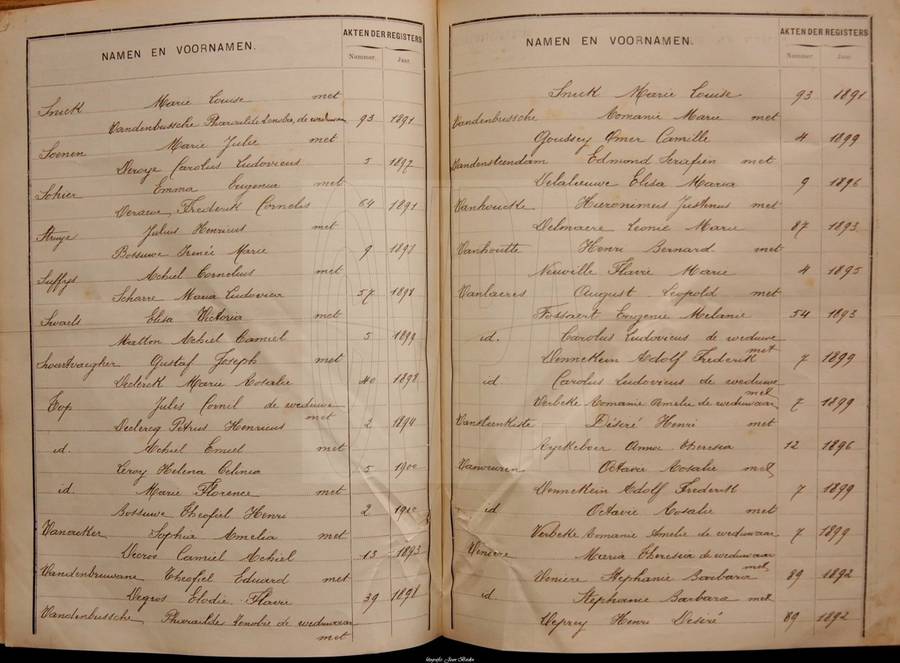 NAMEN EN VOORNAMEN.
AKTEN DER REGISTERS
Nummer. Jaar.
Snick Marie Louise met
Vandenbussche Pharaïlde Zenobie de weduwaar 93 1891
Soenen Marie Julie met
Deroye Carolus Ludovicus 5 1897
Sohier Emma Eugenia met
Deraeve Frederik Cornelis 64 1891
Struye Julius Henricus met
Bossuwe Irenée Marie 9 1898
Suffys Achiel Cornelius met
Scharre Maria Ludovica 57 1898
Swaels Elisa Victoria met
Matton Achiel Camiel 5 1899
Gustaf Joseph met
Declerck Marie Rosalie 40 1898
Top Jules Cornil de weduwe
met
Declercq Petrus Henricus 2 1894
id. Achiel Emiel met
Leroy Helena Celinea 5 1900
id. Marie Florence met
Bossuwe Theofiel Henri 2 1900
Vanacker Sophia Amelia met
Degros Camiel Achiel 13 1893
Vandenbruwane Theofiel Eduard met
Degros Elodie Flavie 39 1898
Vandenbussche Pharaïlde Zenobie de weduwaar
met
NAMEN EN VOORNAMEN.
AKTEN DER REGISTERS
Nummer. Jaar.
Snick Marie Louise 93 1891
Vandenbussche Romanie Marie met
Goussey Omer Camille 4 1899
Vandensteendam Edmond Serafien met
Delalieuwe Elisa Maria 9 1896
Vanhoucke Hieronimus Justinus met
Delmaere Leonie Marie 87 1893
Vanhoutte Henri Bernard met
Neuville Flavie Marie 4 1895
Vanlaeres August Leopold met
Fossaert Eugenie Melanie 54 1893
id. Carolus Ludovicus de weduwe
met
Dennekein Adolf Frederik 7 1899
id Carolus Ludovicus de weduwe
met
Verbeke Romanie Amelie de weduwaar 7 1899
Vansteenkiste Désiré Henri met
Ryckeboer Anna Theresia 12 1896
Vanveuren Octavie Rosalie met
Dennekein Adolf Frederik 7 1899
id Octavie Rosalie met
Verbeke Romanie Amelie de weduwaar 7 1899
Veniere Maria Theresia de weduwaar
met
Veniere Stephanie Barbara 89 1892
id Stephanie Barbara met
Deprey Henri Desiré 89 1892